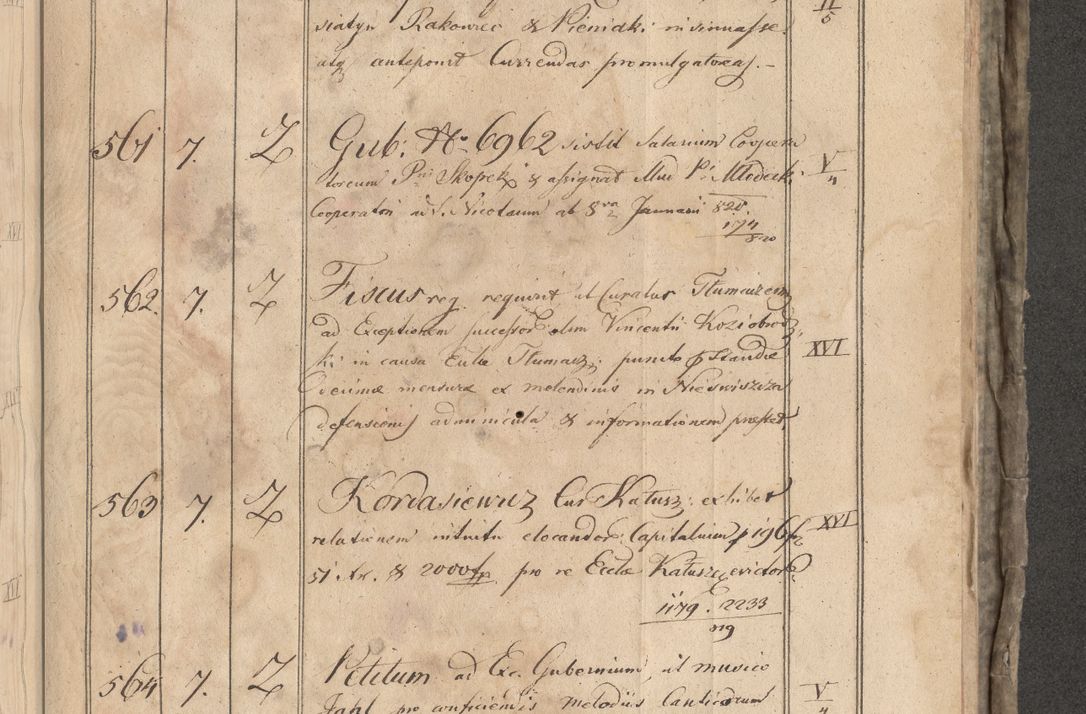 siatyn Rakowiec & Pieniaki insinuasse
II/5
atq anteponit Currendas promulgatorias. –
561 7. Z Gub: No 6962 sistit Salarium Coopera
V/4
torum Pni Skopek & assignat Mud Pi Młodecki
Cooperatori ad S. Nicolaum ab 8va Januarii 820
1174
820
562. 7. Z Fiscus reg. requirit, ut Curatus Tłumaczen
ad Exceptionem successor: olim Vincentii Koziobrodz
ki in causa Eccla Tłumacz: puncto pstandae
XVI
decimae mensurae ex molendinis in Nieswiszcza
defensionis adminicula & informationem praestet
563 7. Z Kordasiewicz Cur Kałusz: exhibet
relationem intuitu elocandor: Capitalium p 196 fr
XVI
51 Xr. & 2000 fr pro re Eccla Kałusz evictor.
1179 . 2233
819
564 7. Z Petitum ad Exc. Gubernium, ut musico
V/4
Jahl pro conficiendis melodiis Canticorum